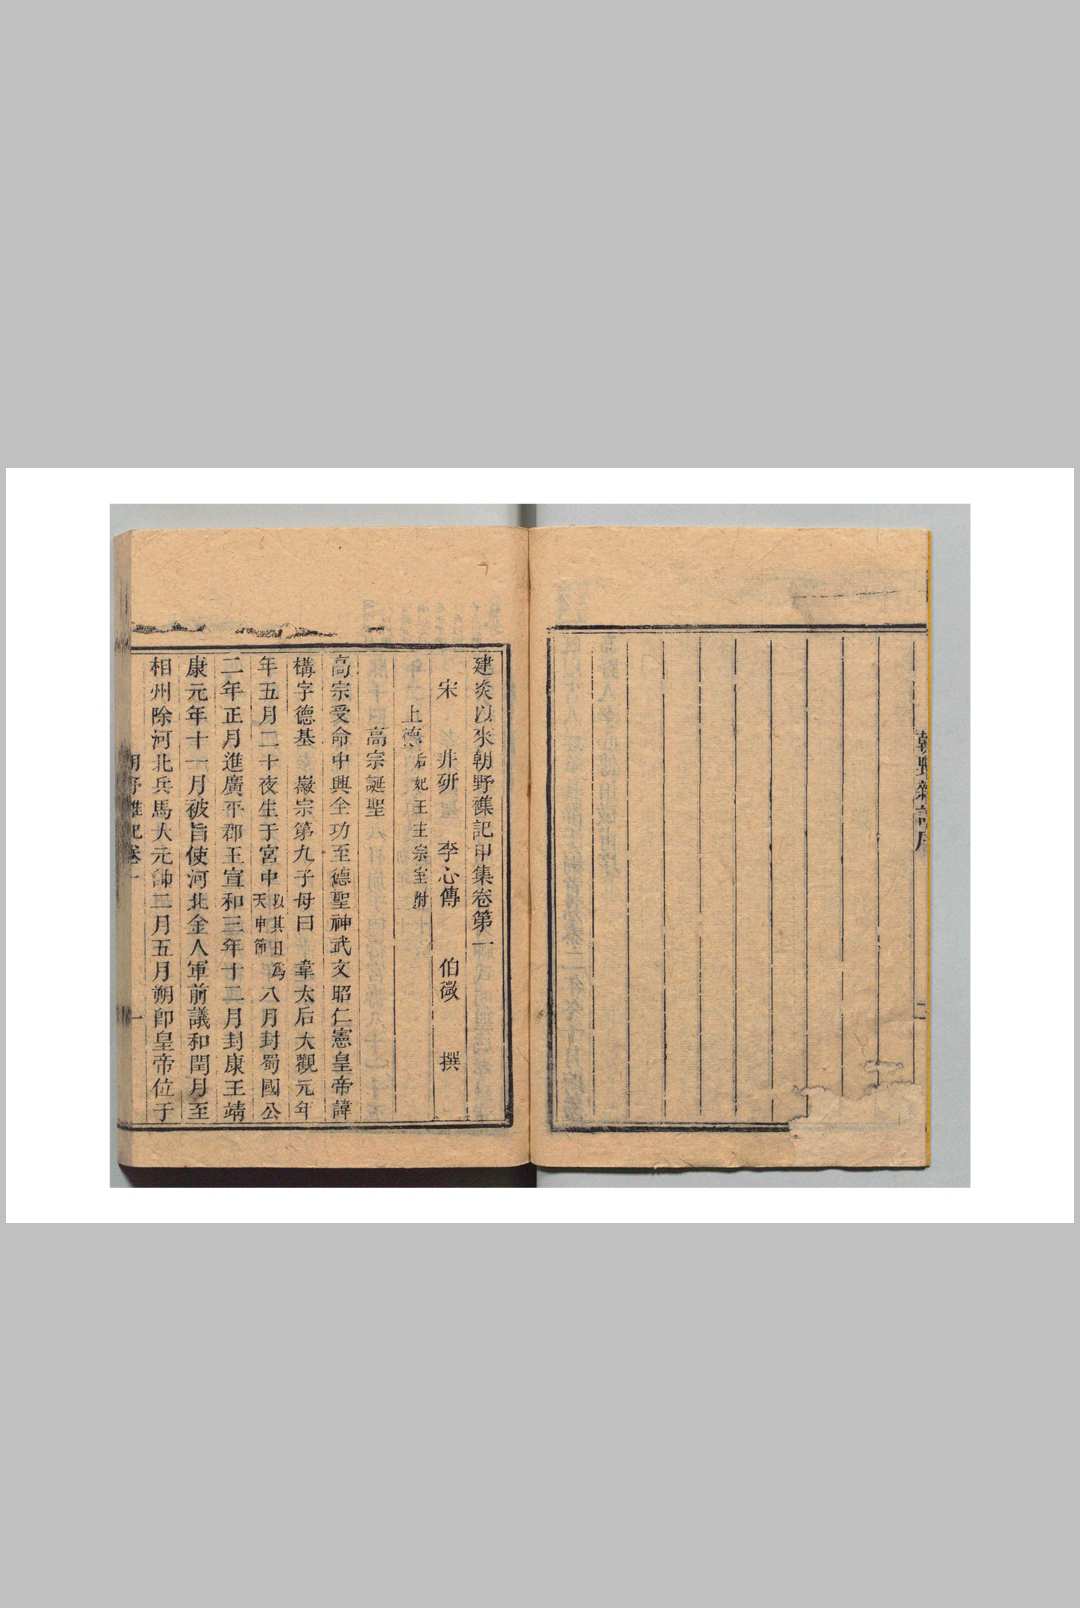 朝野雜記序
二
建炎以來朝野雜記甲集卷第一
宋 井研 李心傳 伯微 撰
上德 后妃王主宗室附
高宗誕聖
高宗受命中興全功至德聖神武文昭仁憲皇帝諱
構字德基 徽宗第九子母曰 韋太后大觀元年
年五月二十夜生于宮中以其日為天申節八月封蜀國公
二年正月進廣平郡王宣和三年十二月封康王靖
康元年十一月被旨使河北金人軍前議和閏月至
相州除河北兵馬大元帥二月五月朔即皇帝位于
朝野雜記卷一
一